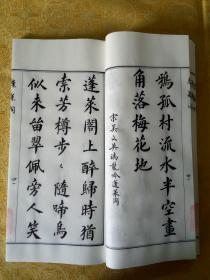 鵶孤村流水半空畫
角落梅花地
宋吳文英瑞龍吟蓬萊閣
蓬萊閣上醉歸時猶
索芳樽步〻隨啼鳥
似來苗翠佩旁人笑